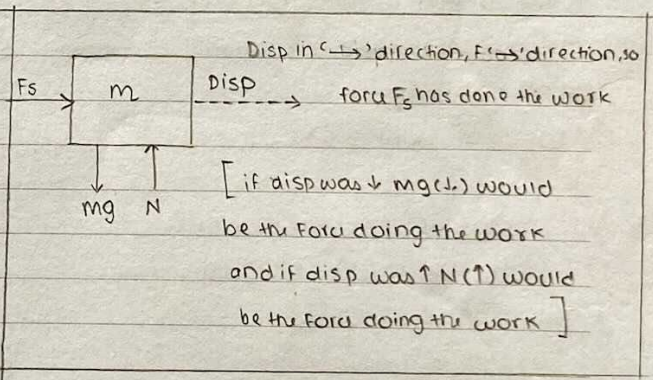 Disp in '→' direction, F '→' direction, so
Fs
m
Disp
force Fs has done the work
mg
N
[ if disp was ↓ mg(↓) would
be the Force doing the work
and if disp was ↑ N(↑) would
be the Force doing the work ]